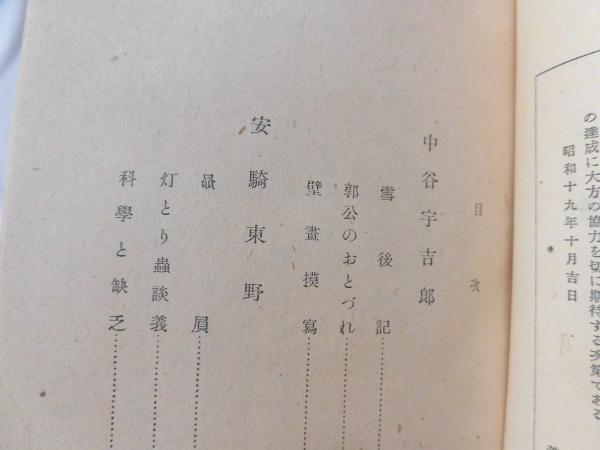 の達成に大方の協力を切に期待する次第である
昭和十九年十月吉日
目次
中谷宇吉郎
雪後記
郭公のおとづれ
壁畫摸寫
安騎東野
贔屓
灯とり蟲談義
科學と缺乏